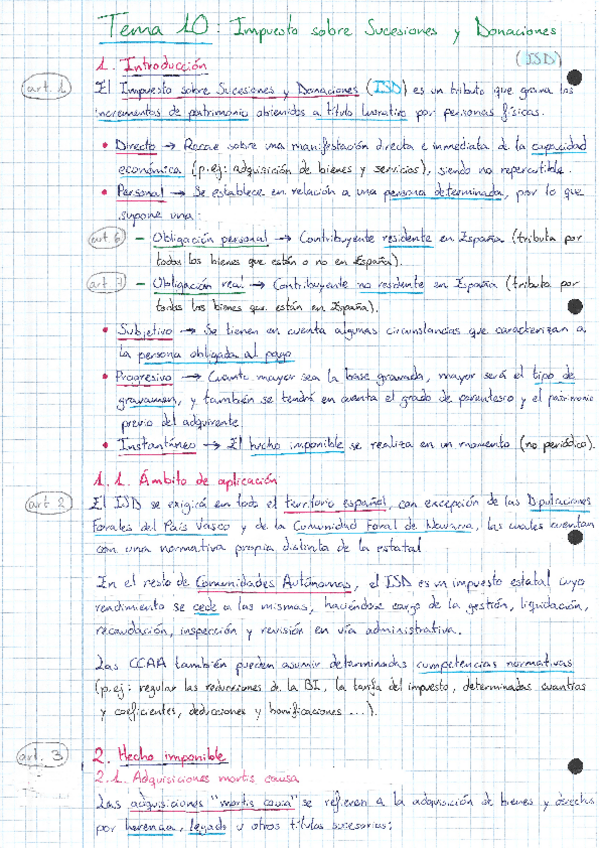 Tema 10: Impuesto sobre Sucesiones y Donaciones
(ISD)
1. Introducción
art. 1
El Impuesto sobre Sucesiones y Donaciones (ISD) es un tributo que grava los
incrementos de patrimonio obtenidos a título lucrativo por personas físicas.
• Directo → Recae sobre una manifestación directa e inmediata de la capacidad
económica (p.ej: adquisición de bienes y servicios), siendo no repercutible.
• Personal → Se establece en relación a una persona determinada, por lo que
supone una:
art. 6
- Obligación personal → Contribuyente residente en España (tributa por
todos los bienes que están o no en España).
art. 7
- Obligación real → Contribuyente no residente en España (tributa por
todos los bienes que están en España).
• Subjetivo → Se tienen en cuenta algunas circunstancias que caracterizan a
la persona obligada al pago
• Progresivo → Cuanto mayor sea la base gravada, mayor será el tipo de
gravamen, y también se tendrá en cuenta el grado de parentesco y el patrimonio
previo del adquirente.
• Instantáneo → El hecho imponible se realiza en un momento (no periódico).
1.1. Ámbito de aplicación
art 2
El ISD se exigirá en todo el territorio español, con excepción de las Diputaciones
Forales del País Vasco y de la Comunidad Foral de Navarra, las cuales cuentan
con una normativa propia distinta de la estatal
En el resto de Comunidades Autónomas, el ISD es un impuesto estatal cuyo
rendimiento se cede a las mismas, haciéndose cargo de la gestión, liquidación,
recaudación, inspección y revisión en vía administrativa.
Las CCAA también pueden asumir determinadas competencias normativas
(p.ej: regular las reducciones de la BI, la tarifa del impuesto, determinadas cuantías
y coeficientes, deducciones y bonificaciones ...).
art. 3
2. Hecho imponible
2.1. Adquisiciones mortis causa
Las adquisiciones "mortis causa" se refieren a la adquisición de bienes y derechos
por herencia, legado u otros títulos sucesorios: